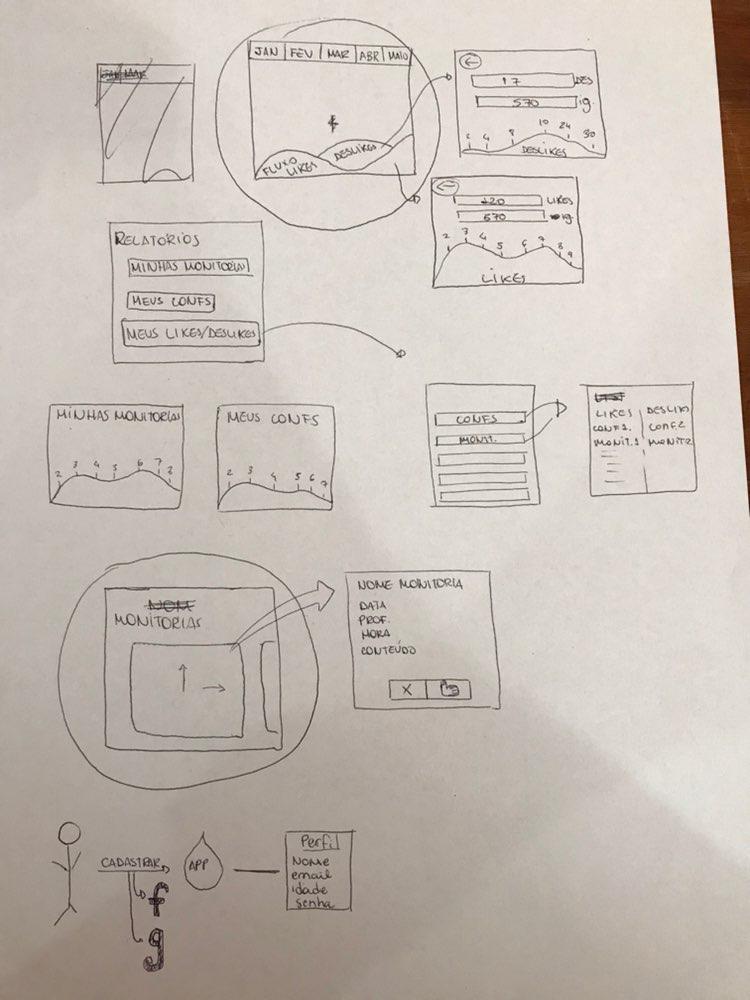 JAN FEV MAR ABR MAIO
FLUXO
LIKES
DESLIKES
17 DES
570 ig.
2 4 8 10 24 30
DESLIKES
420 LIKES
570 ig
2 3 4 5 6 7 8 9
LIKES
RELATORIOS
MINHAS MONITORIAS
MEUS CONFS
MEUS LIKES/DESLIKES
MINHAS MONITORIAS
2 3 4 5 6 7 8
MEUS CONFS
2 3 4 5 6 7
CONFS
MONIT.
LIKES DESLIKES
CONF1. CONF.2
MONIT.1 MONIT2
NOM
MONITORIAS
NOME MONITORIA
DATA
PROF.
HORA
CONTEÚDO
X
CADASTRAR
APP
f
g
Perfil
NOME
email
idade
senha